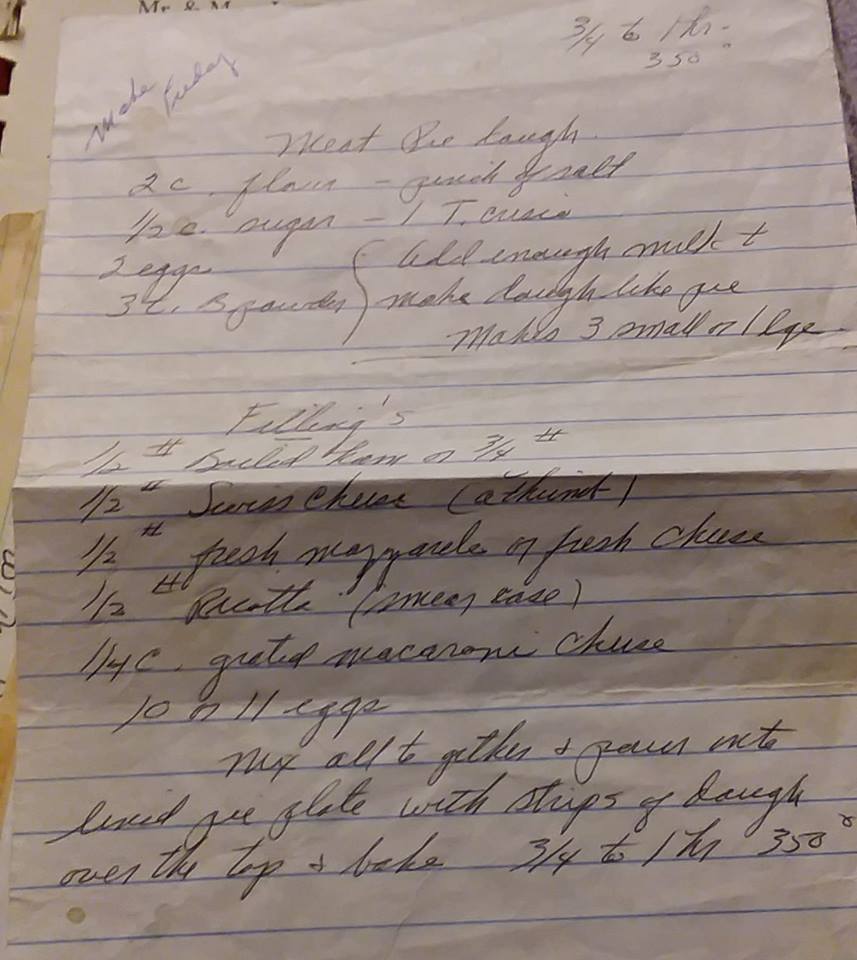 Mr. & M
3/4 to 1 hr -
350°
Make
Friday
Meat Pie Dough
2 c. flour - pinch of salt
1/2 c. sugar - 1 T. crisco
2 eggs { Add enough milk t
3 t. B powder make dough like pie
Makes 3 small or 1 lge
Filling's
1/2 # Boiled ham or 3/4 #
1/2 # Swiss cheese
1/2 # fresh mozzarela or fresh cheese
1/2 # Ricotta (smear case)
1/4 c. grated macaroni cheese
10 or 11 eggs
Mix all to gether & pour into
lined pie plate with strips of dough
over the top & bake 3/4 to 1 hr 350°